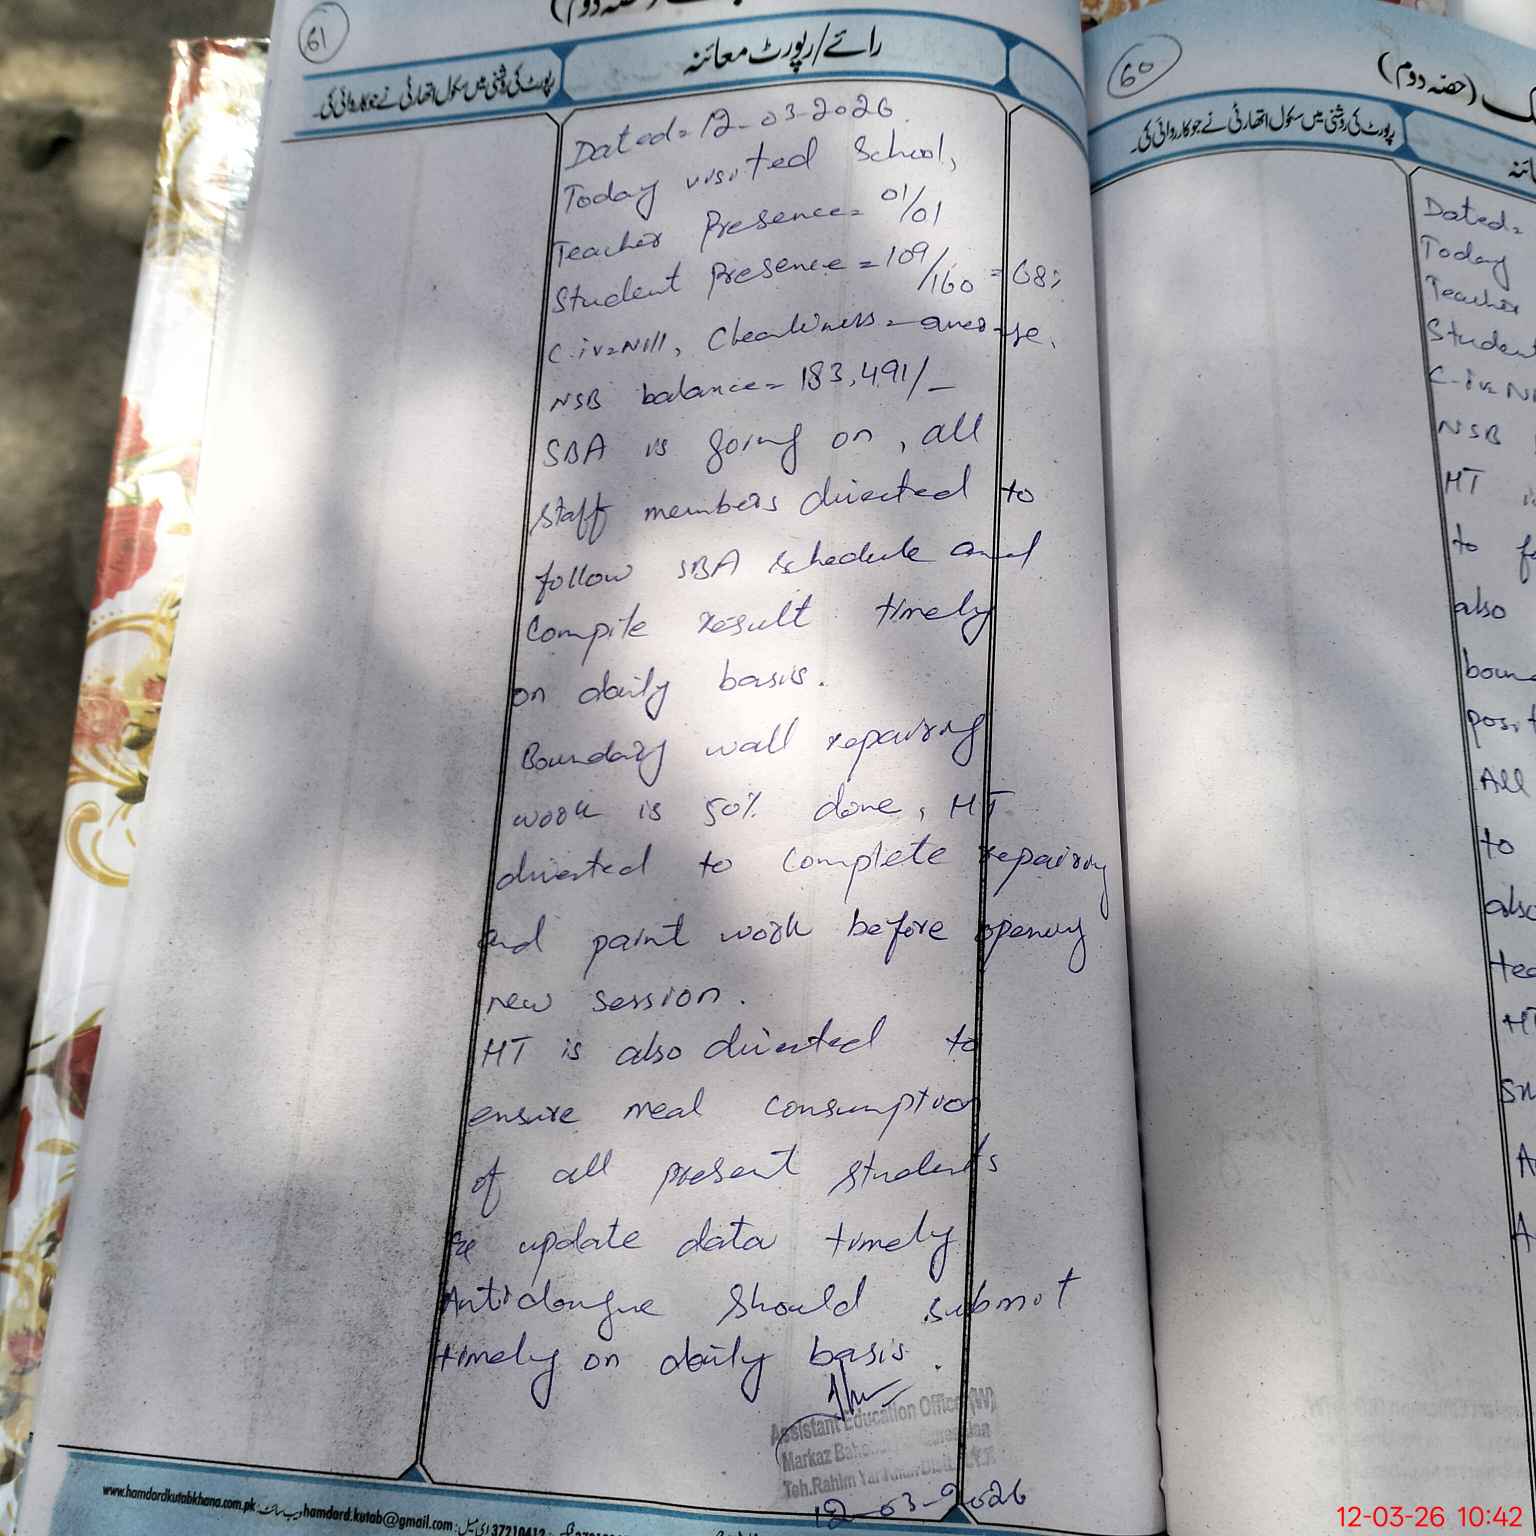 61
رائے/رپورٹ معائنہ
رپورٹ کی روشنی میں سکول اتھارٹی نے جو کارروائی کی۔
Dated= 12-03-2026.
Today visited School,
Teacher Presence= 01/01
Student Presence = 109/160 = 68%
C.iv=Nill, Cleanliness = average.
NSB balance= 183,491/-
SBA is going on, all
staff members directed to
follow SBA schedule and
Compile result timely
on daily basis.
Boundary wall repairing
work is 50% done, HT
directed to complete repairing
and paint work before opening
new session.
HT is also directed to
ensure meal consumption
of all present students
& update data timely
Antidengue should submit
timely on daily basis.
Assistant Education Officer (W)
Markaz
Teh. Rahim Yar Khan
12-03-2026
www.hamdardkutabkhana.com.pk
hamdard.kutab@gmail.com
37210412
60
(حصہ دوم)
رپورٹ کی روشنی میں سکول اتھارٹی نے جو کارروائی کی۔
Dated=
Today
Teacher
Student
C-iv=
NSB
HT
to
also
All
to
HT
12-03-26 10:42